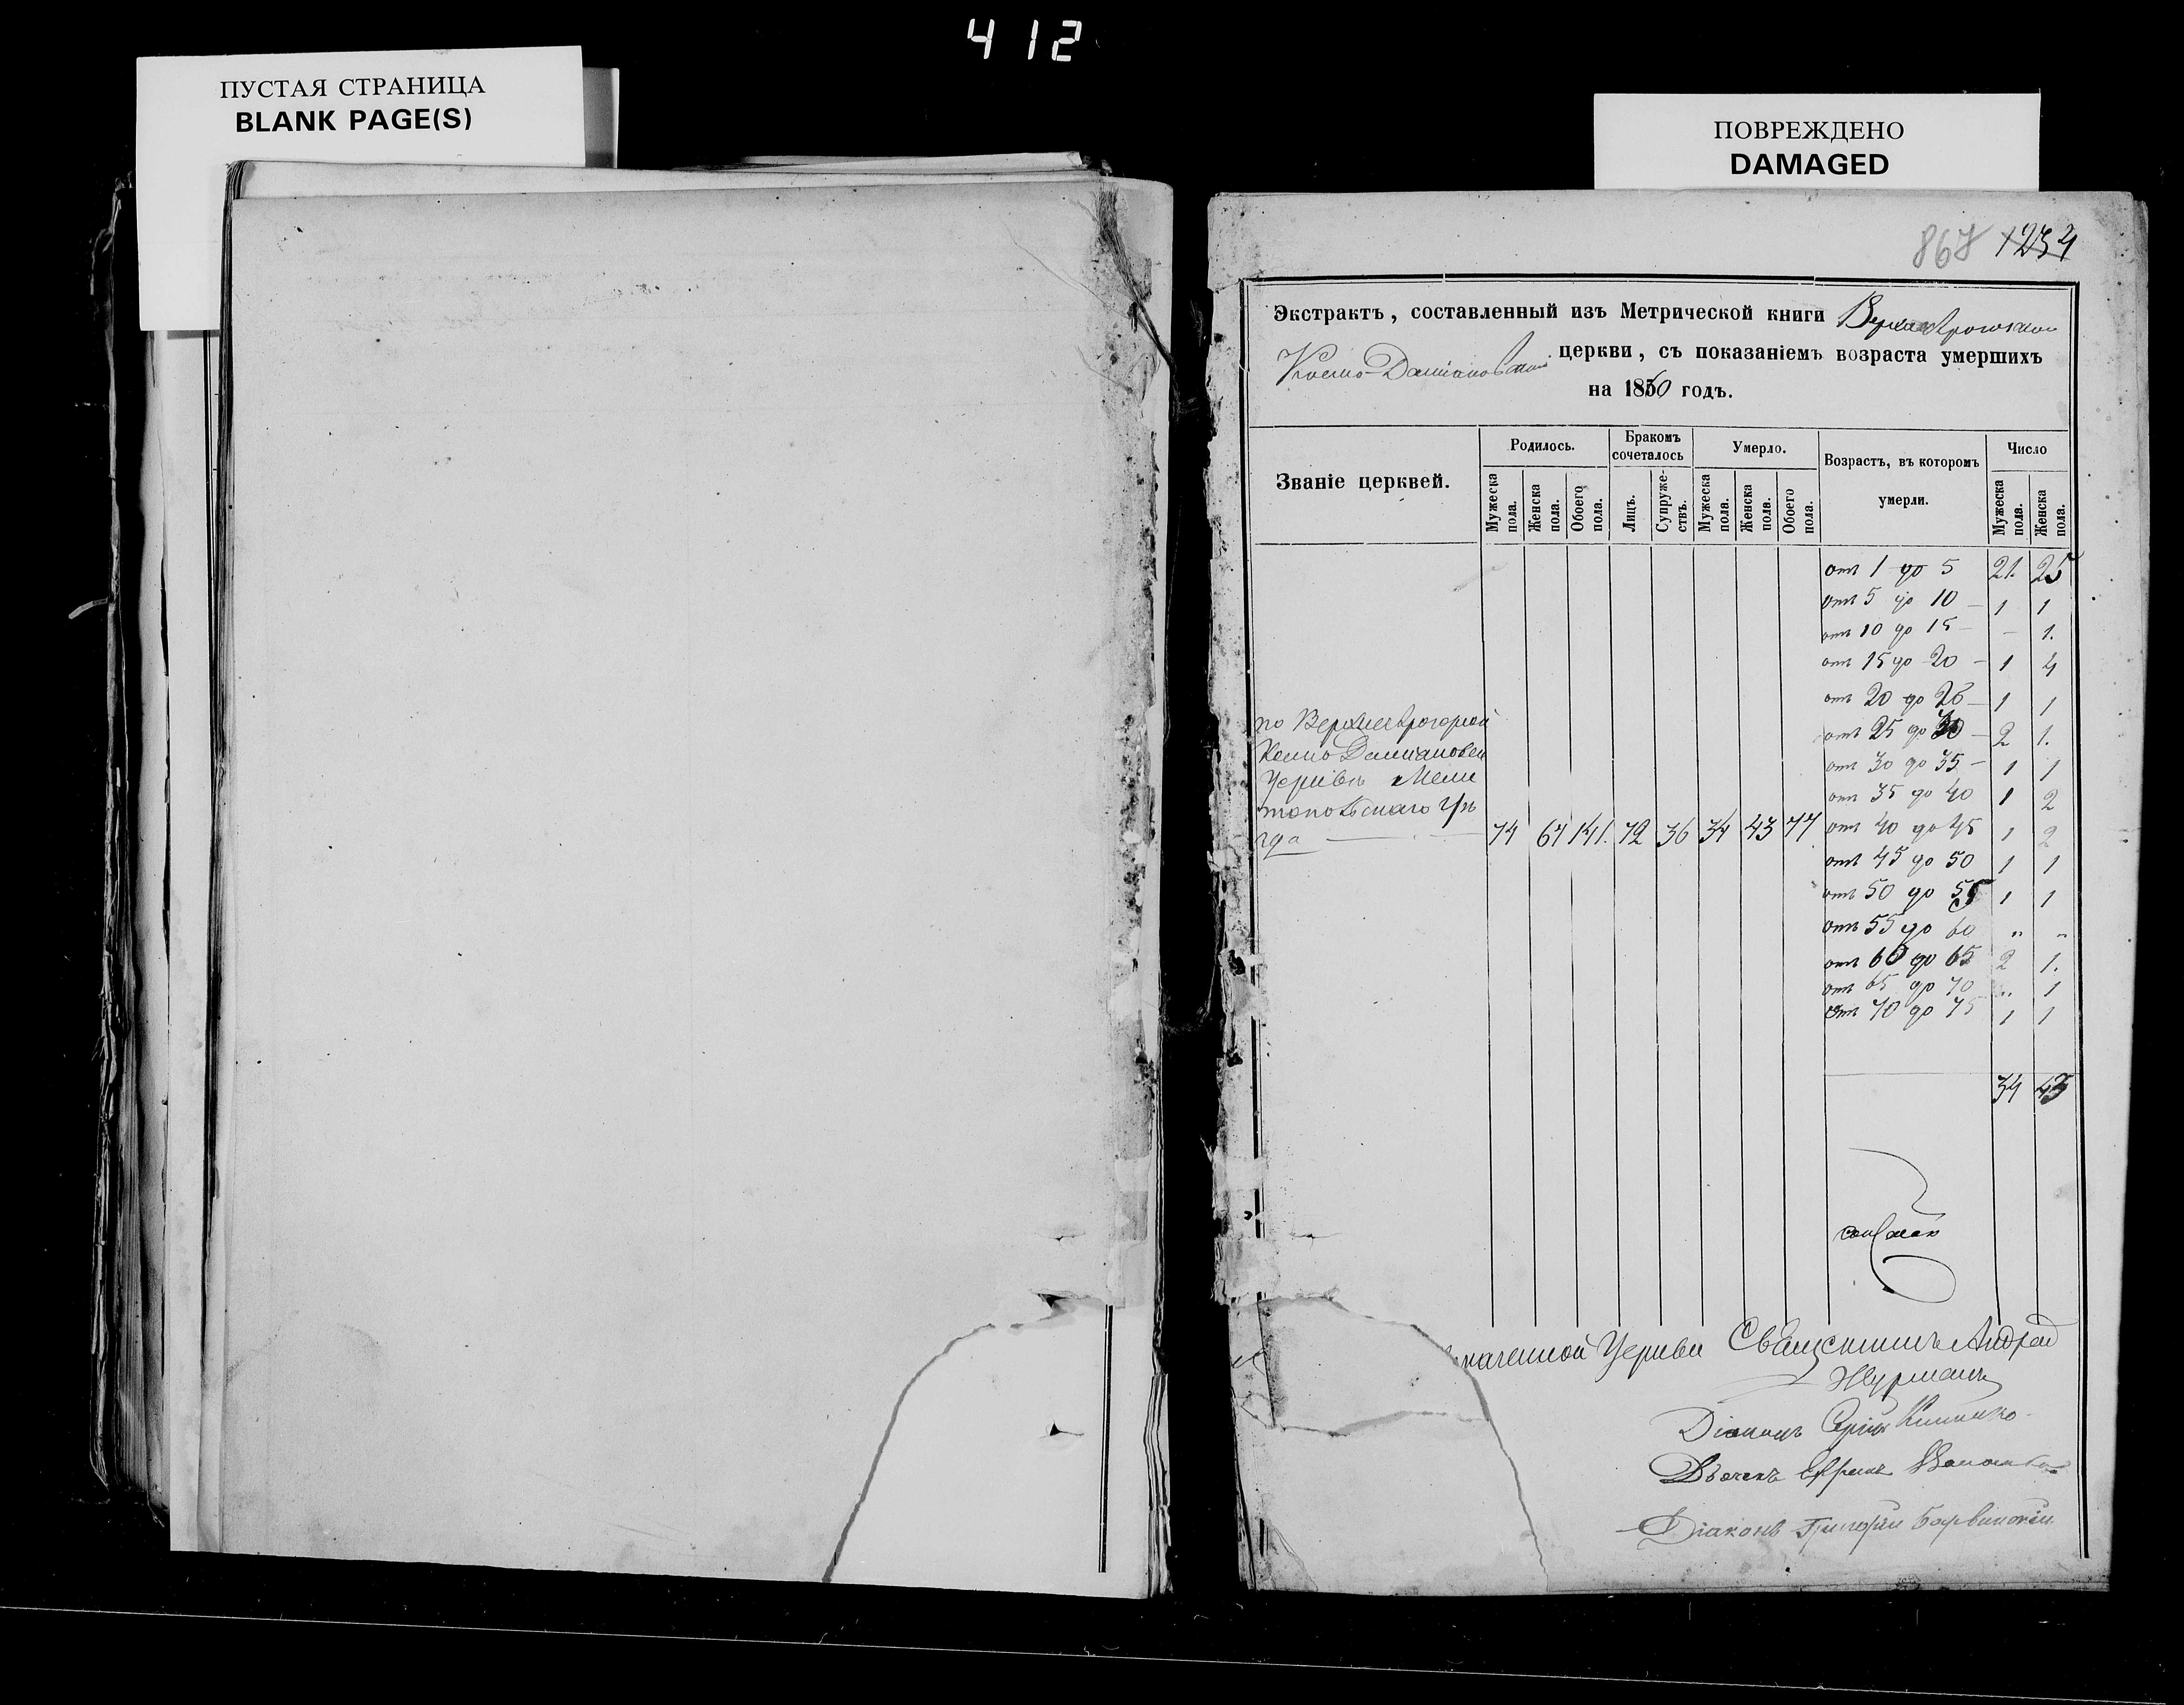 412
ПУСТАЯ СТРАНИЦА
BLANK PAGE(S)
ПОВРЕЖДЕНО
DAMAGED
867 1234
Экстрактъ, составленный изъ Метрической книги
Космо-Даміановской церкви, съ показаніемъ возраста умершихъ
на 1860 годъ.
Званіе церквей.
Родилось.
Бракомъ сочеталось
Умерло.
Возрастъ, въ которомъ умерли.
Число
Мужеска пола.
Женска пола.
Обоего пола.
Лицъ.
Супружествъ.
Мужеска пола.
Женска пола.
Обоего пола.
Мужеска пола.
Женска пола.
отъ 1 до 5 21. 25
отъ 5 до 10 – 1 1
отъ 10 до 15 – – 1.
отъ 15 до 20 – 1 4
отъ 20 до 25 – 1 1
отъ 25 до 30 – 2 1.
отъ 30 до 35 – 1 1
отъ 35 до 40 1 2
по Верхнерогорной
Космо Даміановской
Церкви Мели
топольскаго уѣ
зда 74 67 141. 72 36 34 43 77 отъ 40 до 45 1 2
отъ 45 до 50 1 1
отъ 50 до 55 1 1
отъ 55 до 60 „ „
отъ 60 до 65 2 1.
отъ 65 до 70 „ 1
отъ 70 до 75 1 1
34 43
наченной Церкви Священникъ Андрей
Журманъ
Діаконъ
Дьячекъ Ефремъ
Діаконъ Григорій Барвинскій